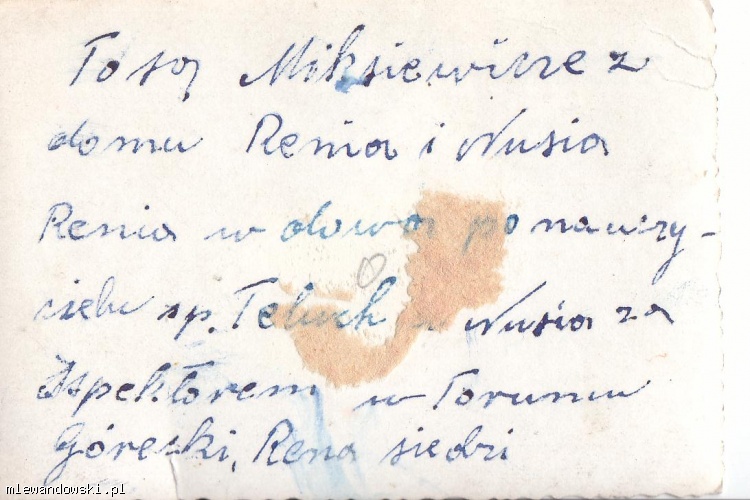 To są Miksiewicze z
domu Renia i Nusia
Renia wdowa po nauczy-
cielu śp. Teluk a Nusia za
Ispektorem w Toruniu
Górecki, Rena siedzi
mlewandowski.pl